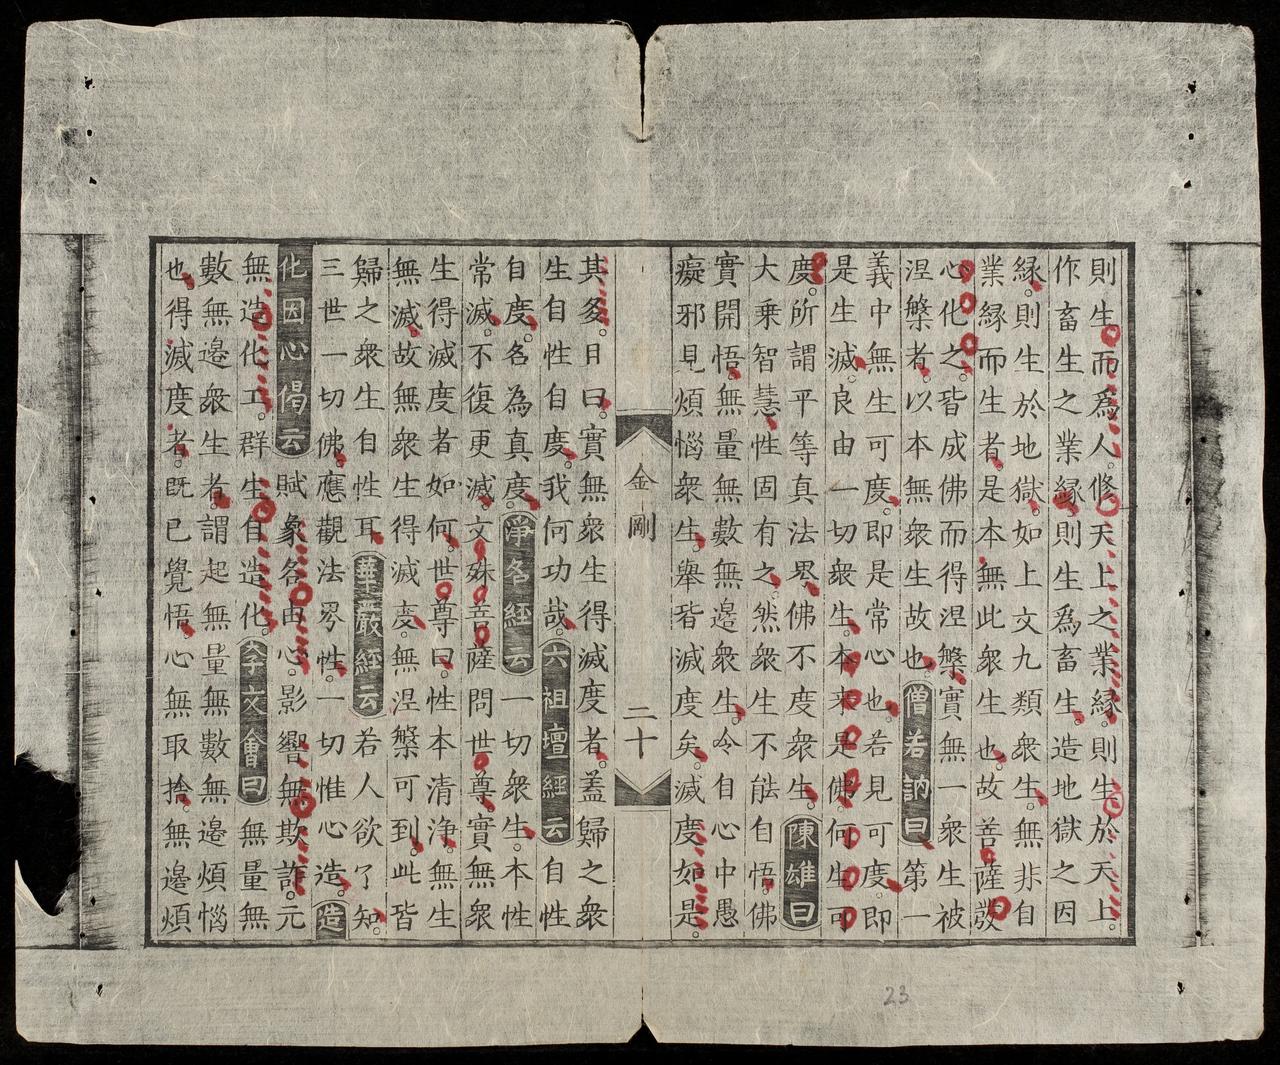 則生而爲人。修天上之業縁。則生於天上。
作畜生之業縁。則生爲畜生。造地獄之因
縁。則生於地獄。如上文九類衆生。無非自
業縁而生者。是本無此衆生也。故菩薩發
心化之。皆成佛而得涅槃。實無一衆生被
涅槃者。以本無衆生故也。僧若訥曰第一
義中無生可度。即是常心也。若見可度。即
是生滅。良由一切衆生。本来是佛。何生可
度。所謂平等真法界。佛不度衆生。陳雄曰
大乗智慧。性固有之。然衆生不能自悟。佛
實開悟。無量無數無邉衆生。今自心中愚
癡邪見煩惱衆生。舉皆滅度矣。滅度如是。
金剛
二十
其多。日曰。實無衆生得滅度者。蓋歸之衆
生自性自度。我何功哉。六祖壇經云自性
自度。名為真度。淨名經云一切衆生。本性
常滅。不復更滅。文殊菩薩問世尊。實無衆
生得滅度者如何。世尊曰。性本清浄。無生
無滅。故無衆生得滅度。無涅槃可到。此皆
歸之衆生自性耳。華嚴經云若人欲了知。
三世一切佛。應觀法界性。一切惟心造。造
化因心偈云賦象各由心。影響無欺詐。元
無造化工。群生自造化。李文會曰無量無
數無邉衆生者。謂起無量無數無邉煩惱
也。得滅度者。既已覺悟。心無取捨。無邉煩
23